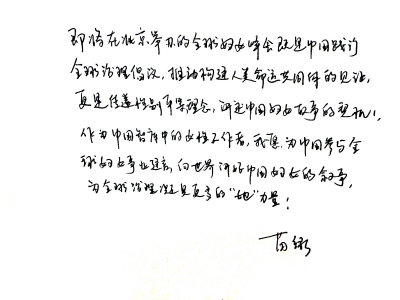 即将在北京举办的全球妇女峰会既是中国践行
全球治理倡议，推动构建人类命运共同体的见证，
更是传递性别平等理念，讲述中国妇女故事的契机！
作为中国智库中的女性工作者，我愿为中国参与全
球妇女事业建言，向世界讲好中国妇女的叙事，
为全球治理凝聚更多的“她”力量！